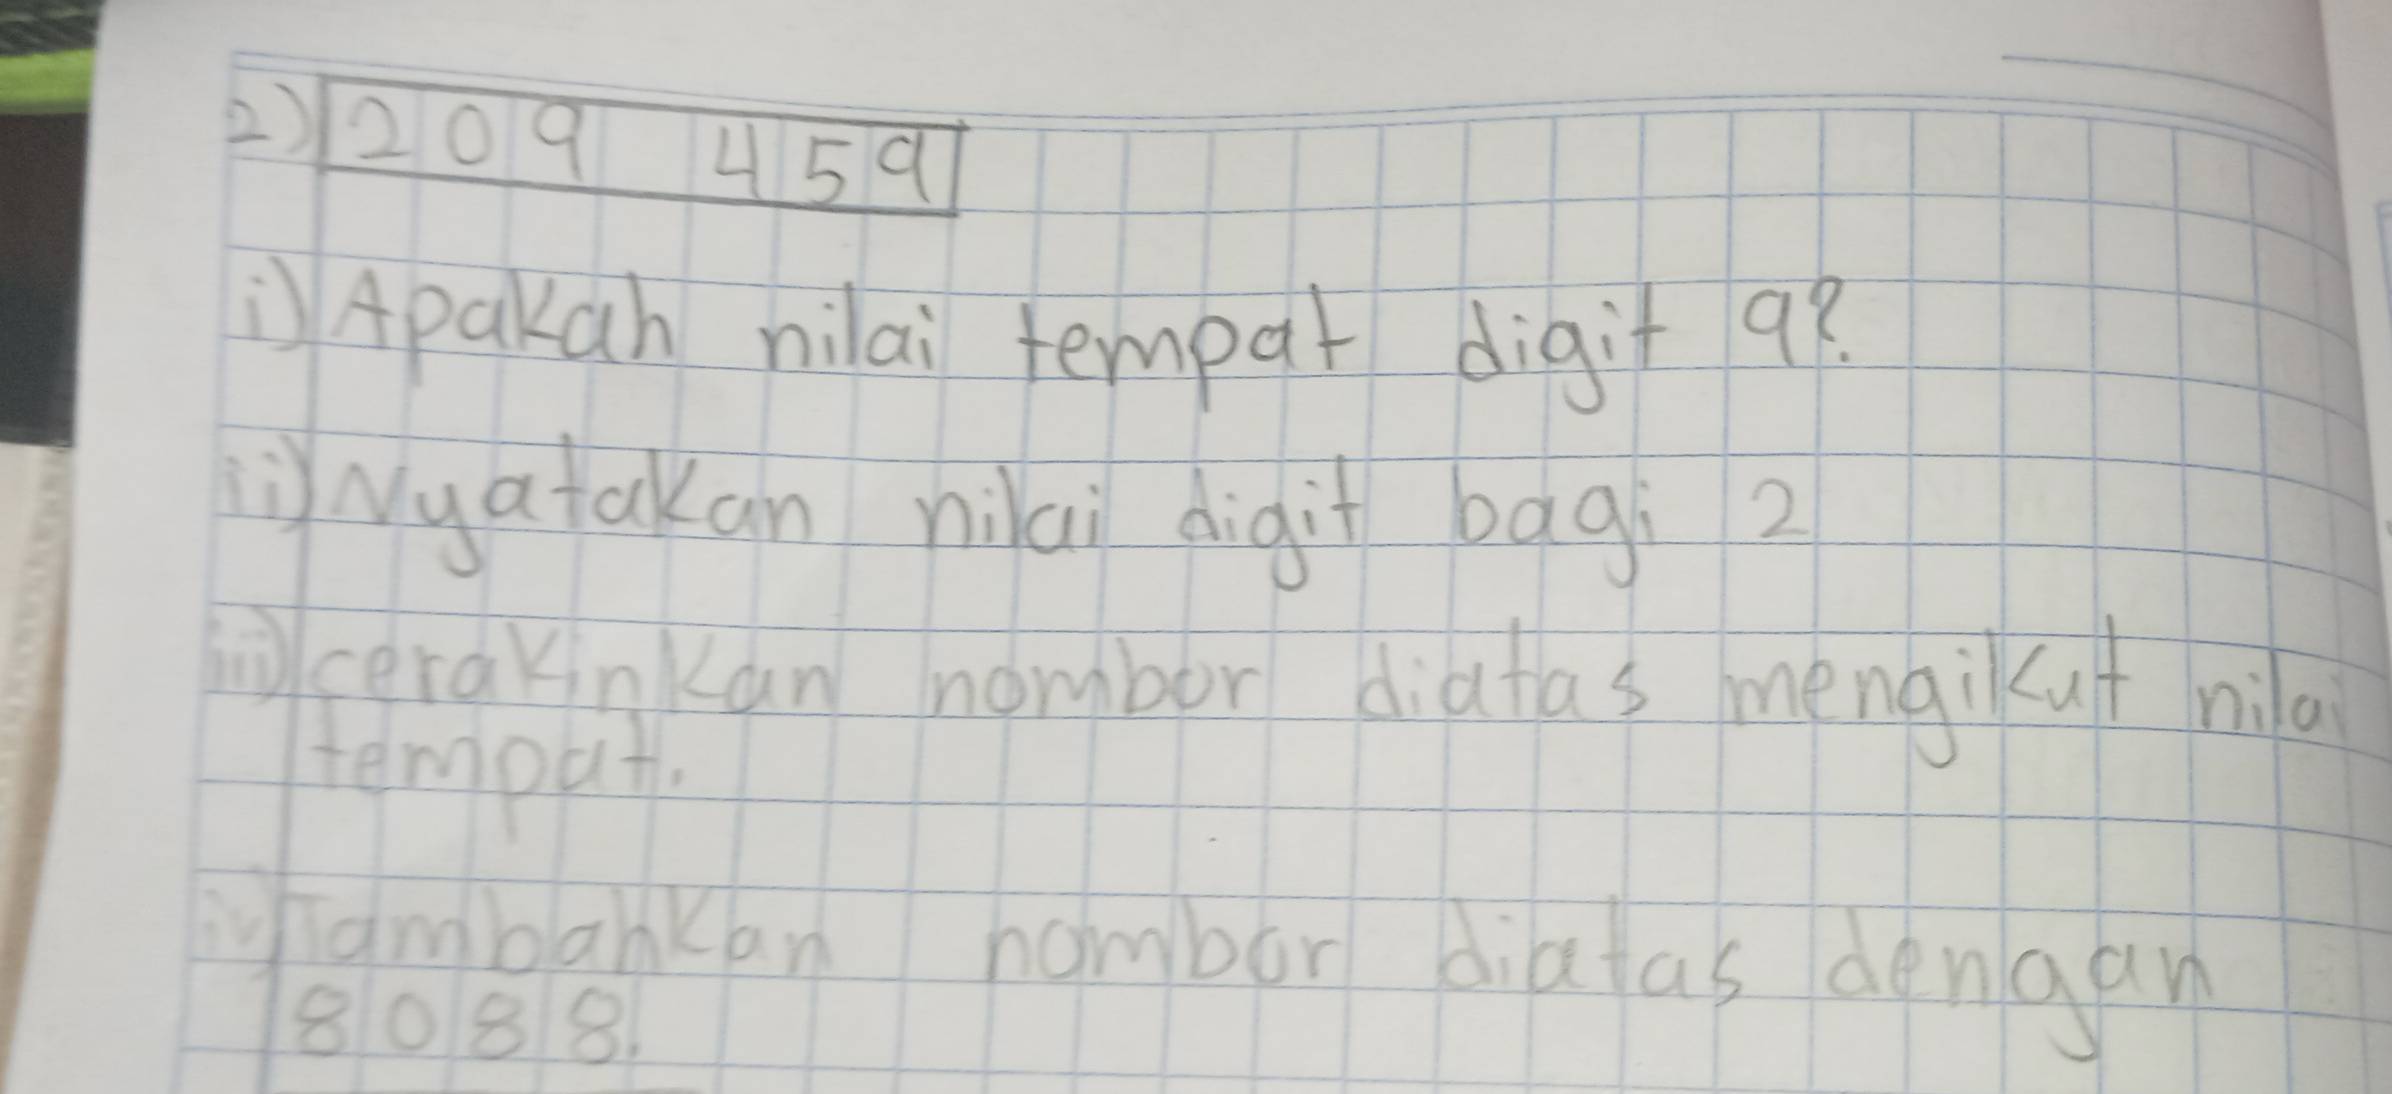 2) 209 459
i) Apakah nilai tempat digit 9?
ii) Nyatakan nilai digit bagi 2
iii) cerakinkan nombor diatas mengikut nilai
tempat.
iv) Tambahkan nombor diatas dengan
8088.